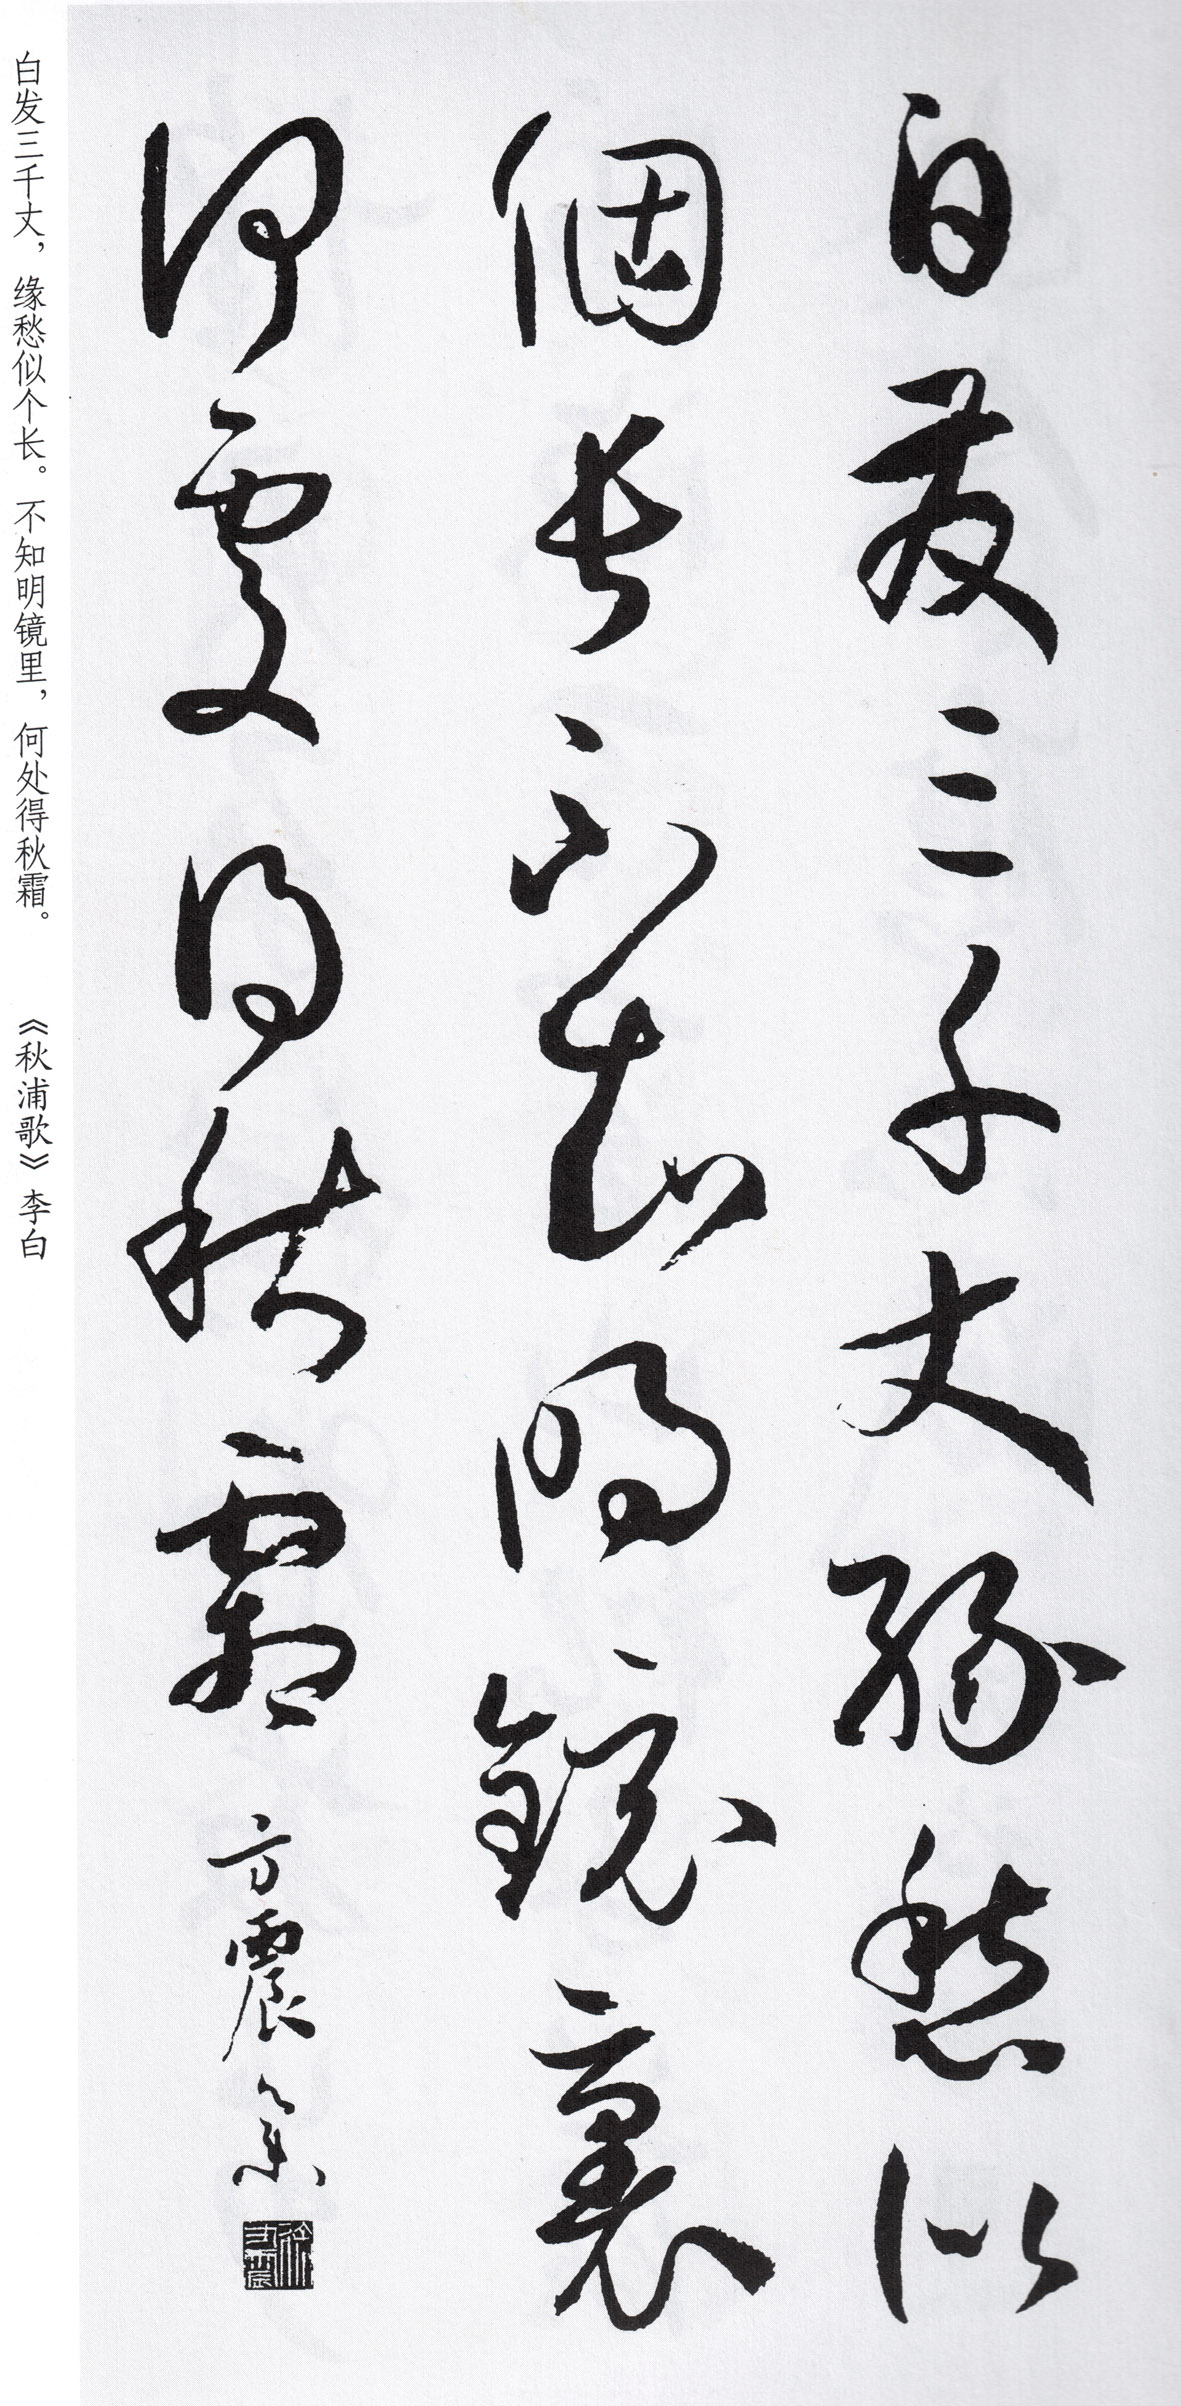 白發三千丈緣愁似
個長不知明鏡裏
何處得秋霜 方震
白发三千丈，缘愁似个长。不知明镜里，何处得秋霜。 《秋浦歌》李白